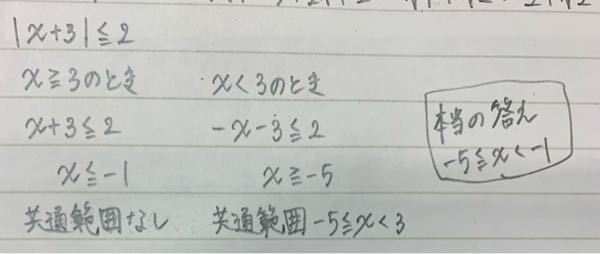 |x+3|≦2
x≧3のとき
x+3≦2
x≦-1
共通範囲なし
x<3のとき
-x-3≦2
x≧-5
共通範囲-5≦x<3
本当の答え
-5≦x<-1